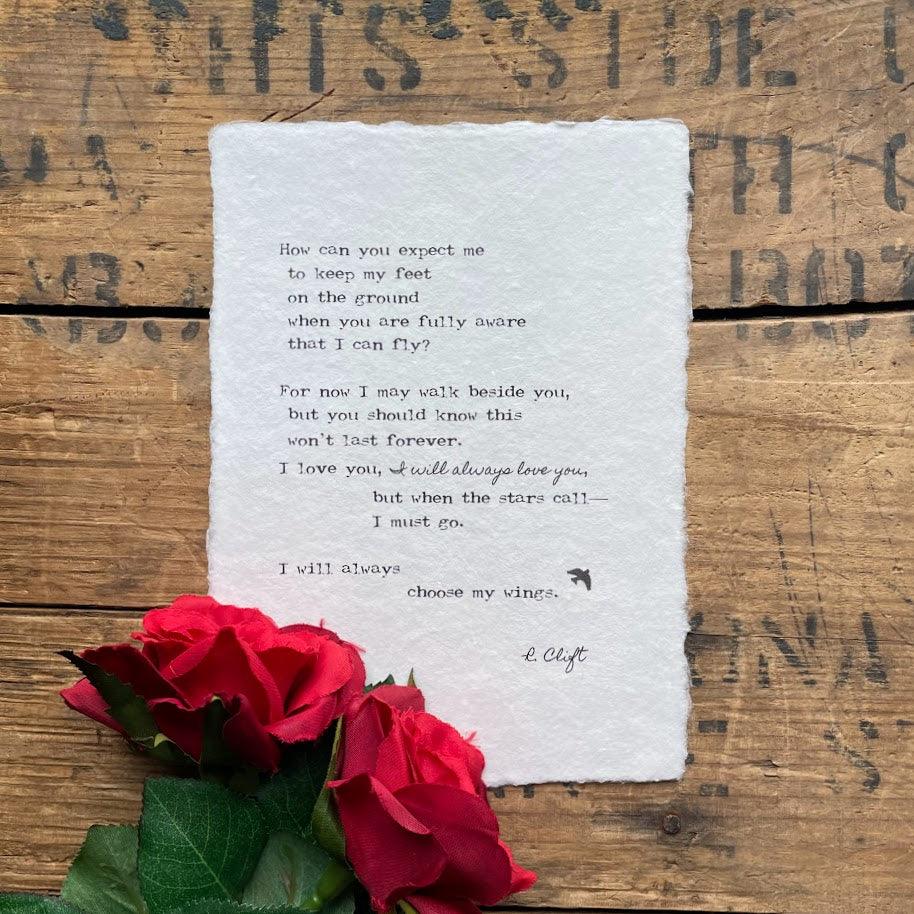 THIS SIDE
How can you expect me
to keep my feet
on the ground
when you are fully aware
that I can fly?
For now I may walk beside you,
but you should know this
won't last forever.
I love you, I will always love you,
but when the stars call—
I must go.
I will always
choose my wings.
R. Clift